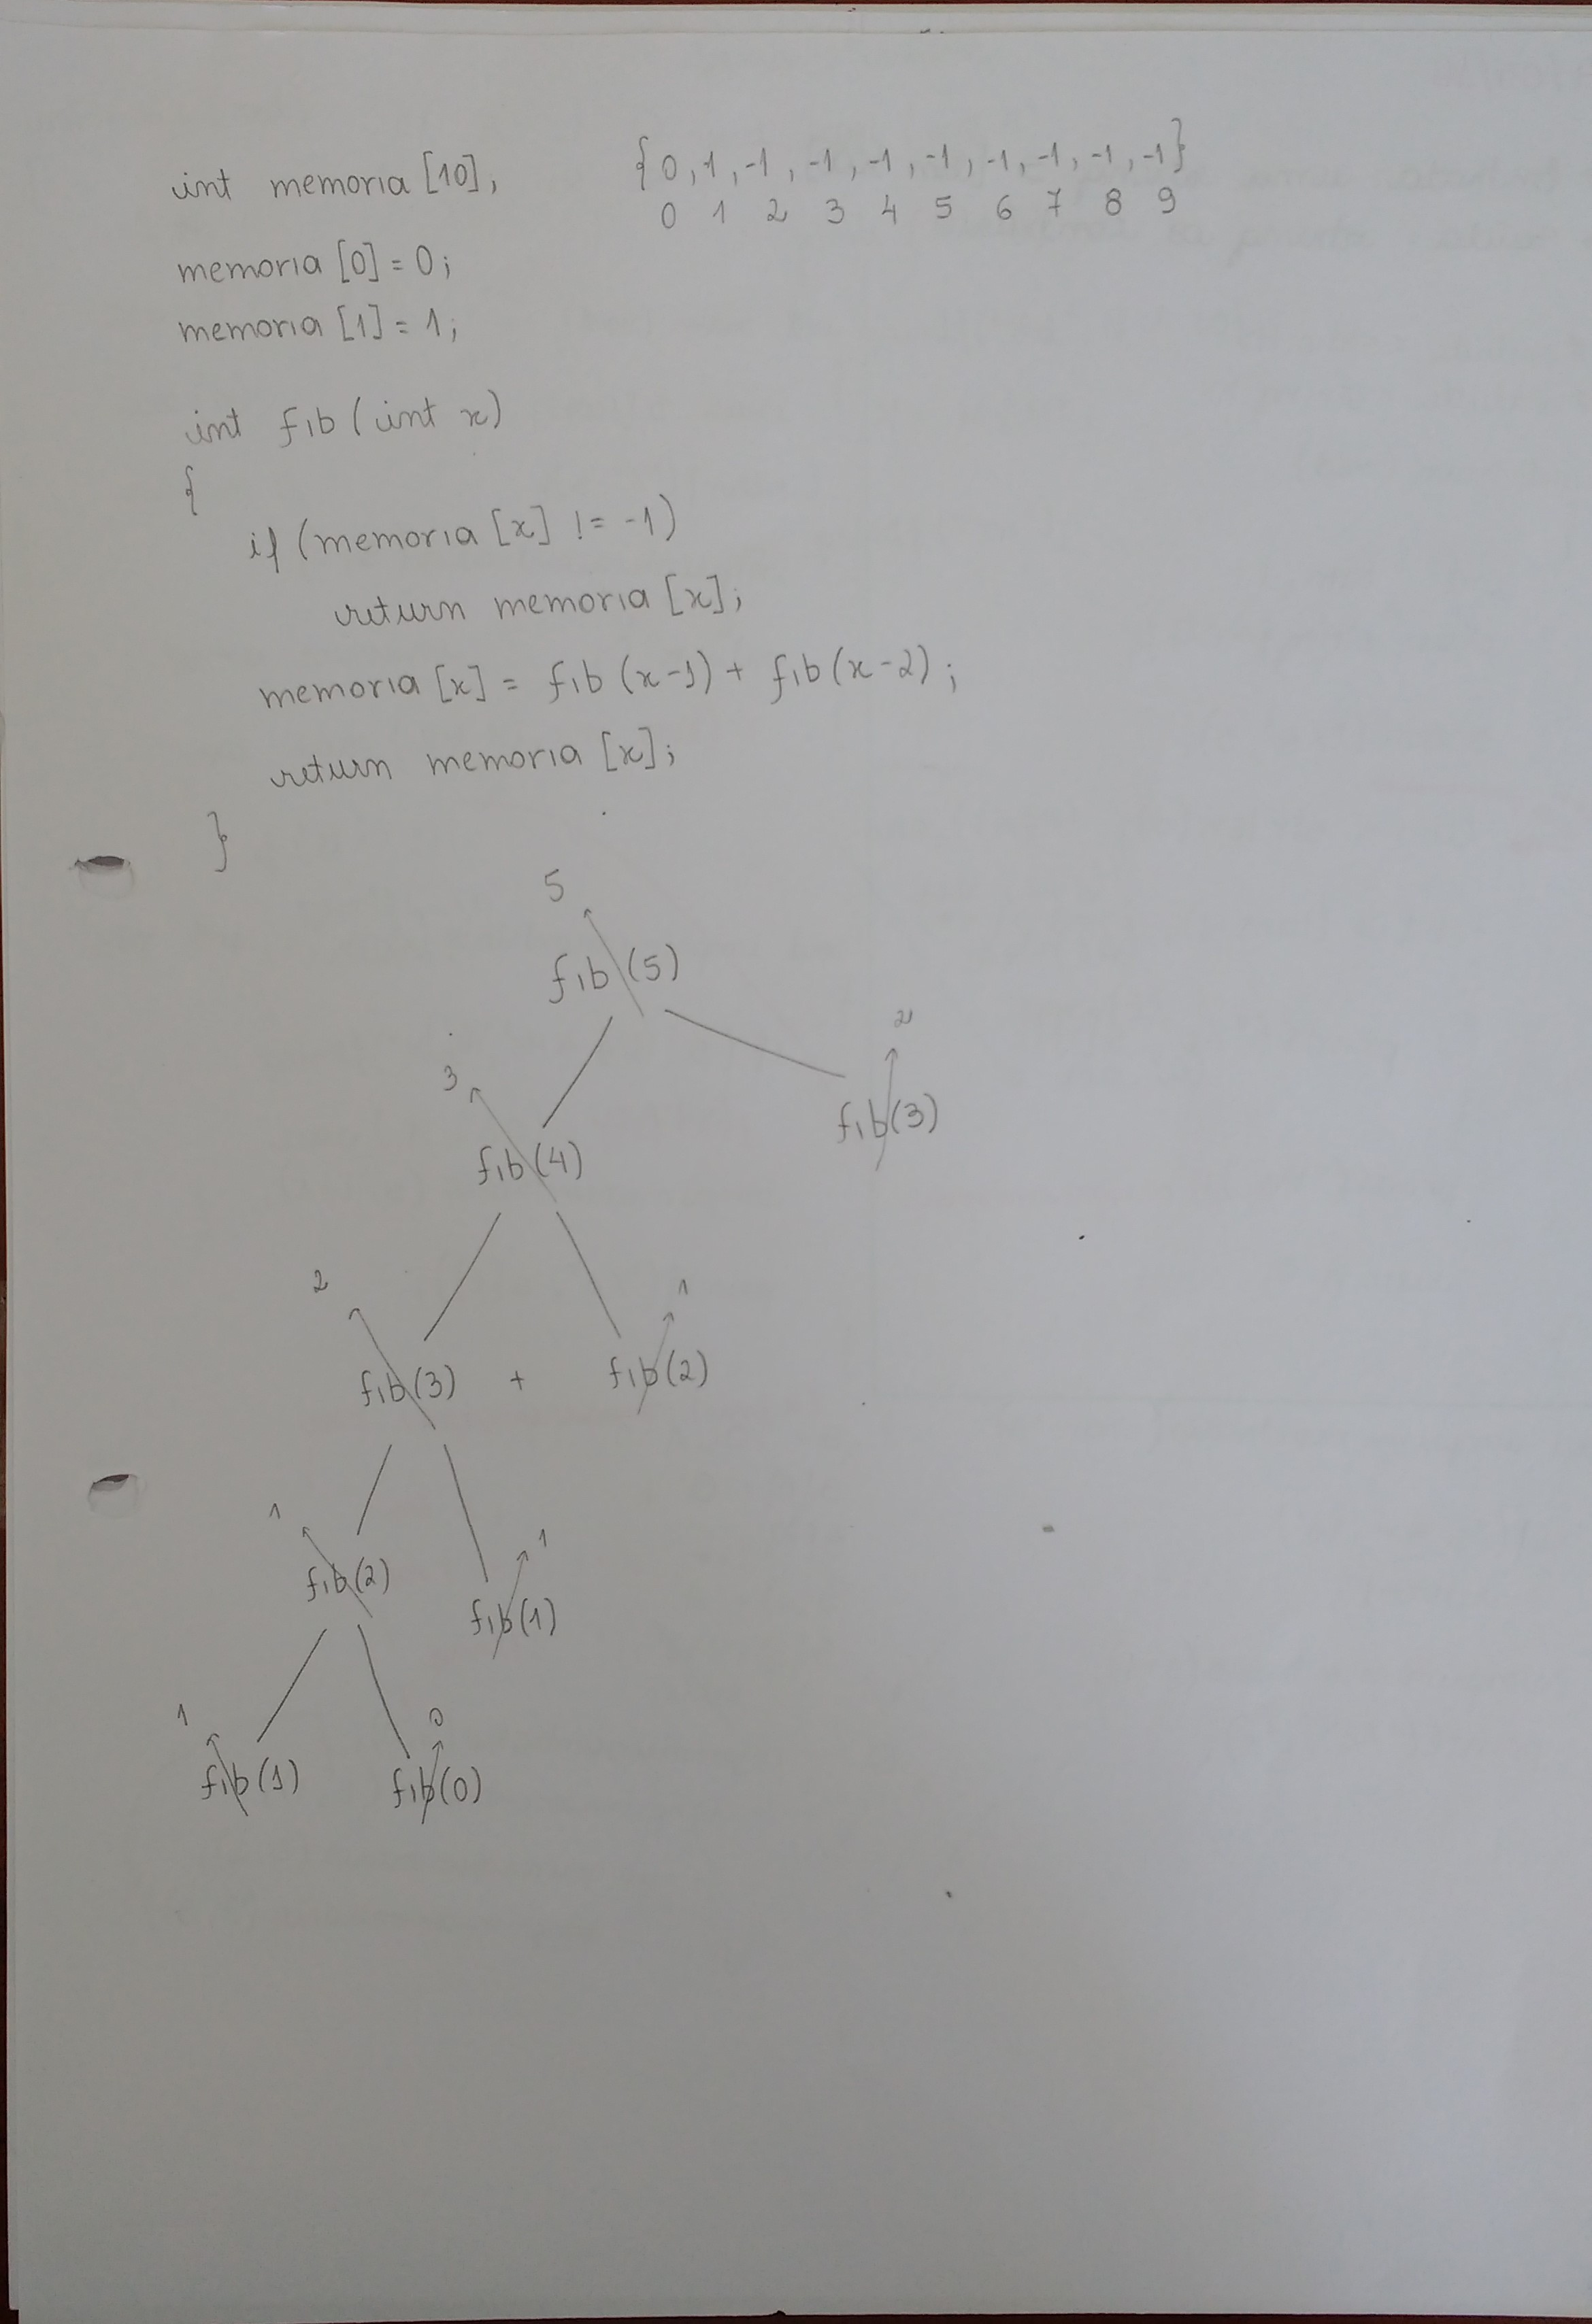 int memoria [10];
{0,1,-1,-1,-1,-1,-1,-1,-1,-1}
0 1 2 3 4 5 6 7 8 9
memoria [0] = 0;
memoria [1] = 1;
int fib (int x)
{
if (memoria [x] != -1)
return memoria [x];
memoria [x] = fib (x-1) + fib (x-2);
return memoria [x];
}
5
fib (5)
2
3
fib(3)
fib(4)
2
1
fib(3) + fib(2)
1
1
fib(2)
fib(1)
1
0
fib(1) fib(0)